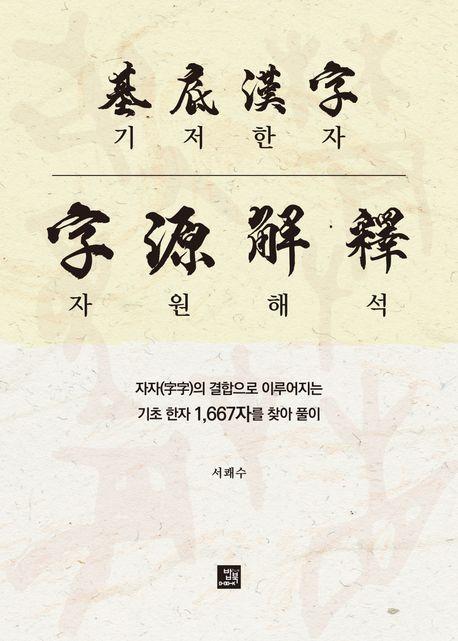 基底漢字
기저한자
字源解釋
자원해석
자자(字字)의 결합으로 이루어지는
기초 한자 1,667자를 찾아 풀이
서쾌수
밥북